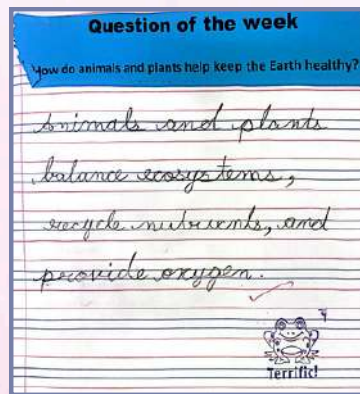 Question of the week
How do animals and plants help keep the Earth healthy?
Animals and plants
balance ecosystems,
recycle nutrients, and
provide oxygen.
Terrific!